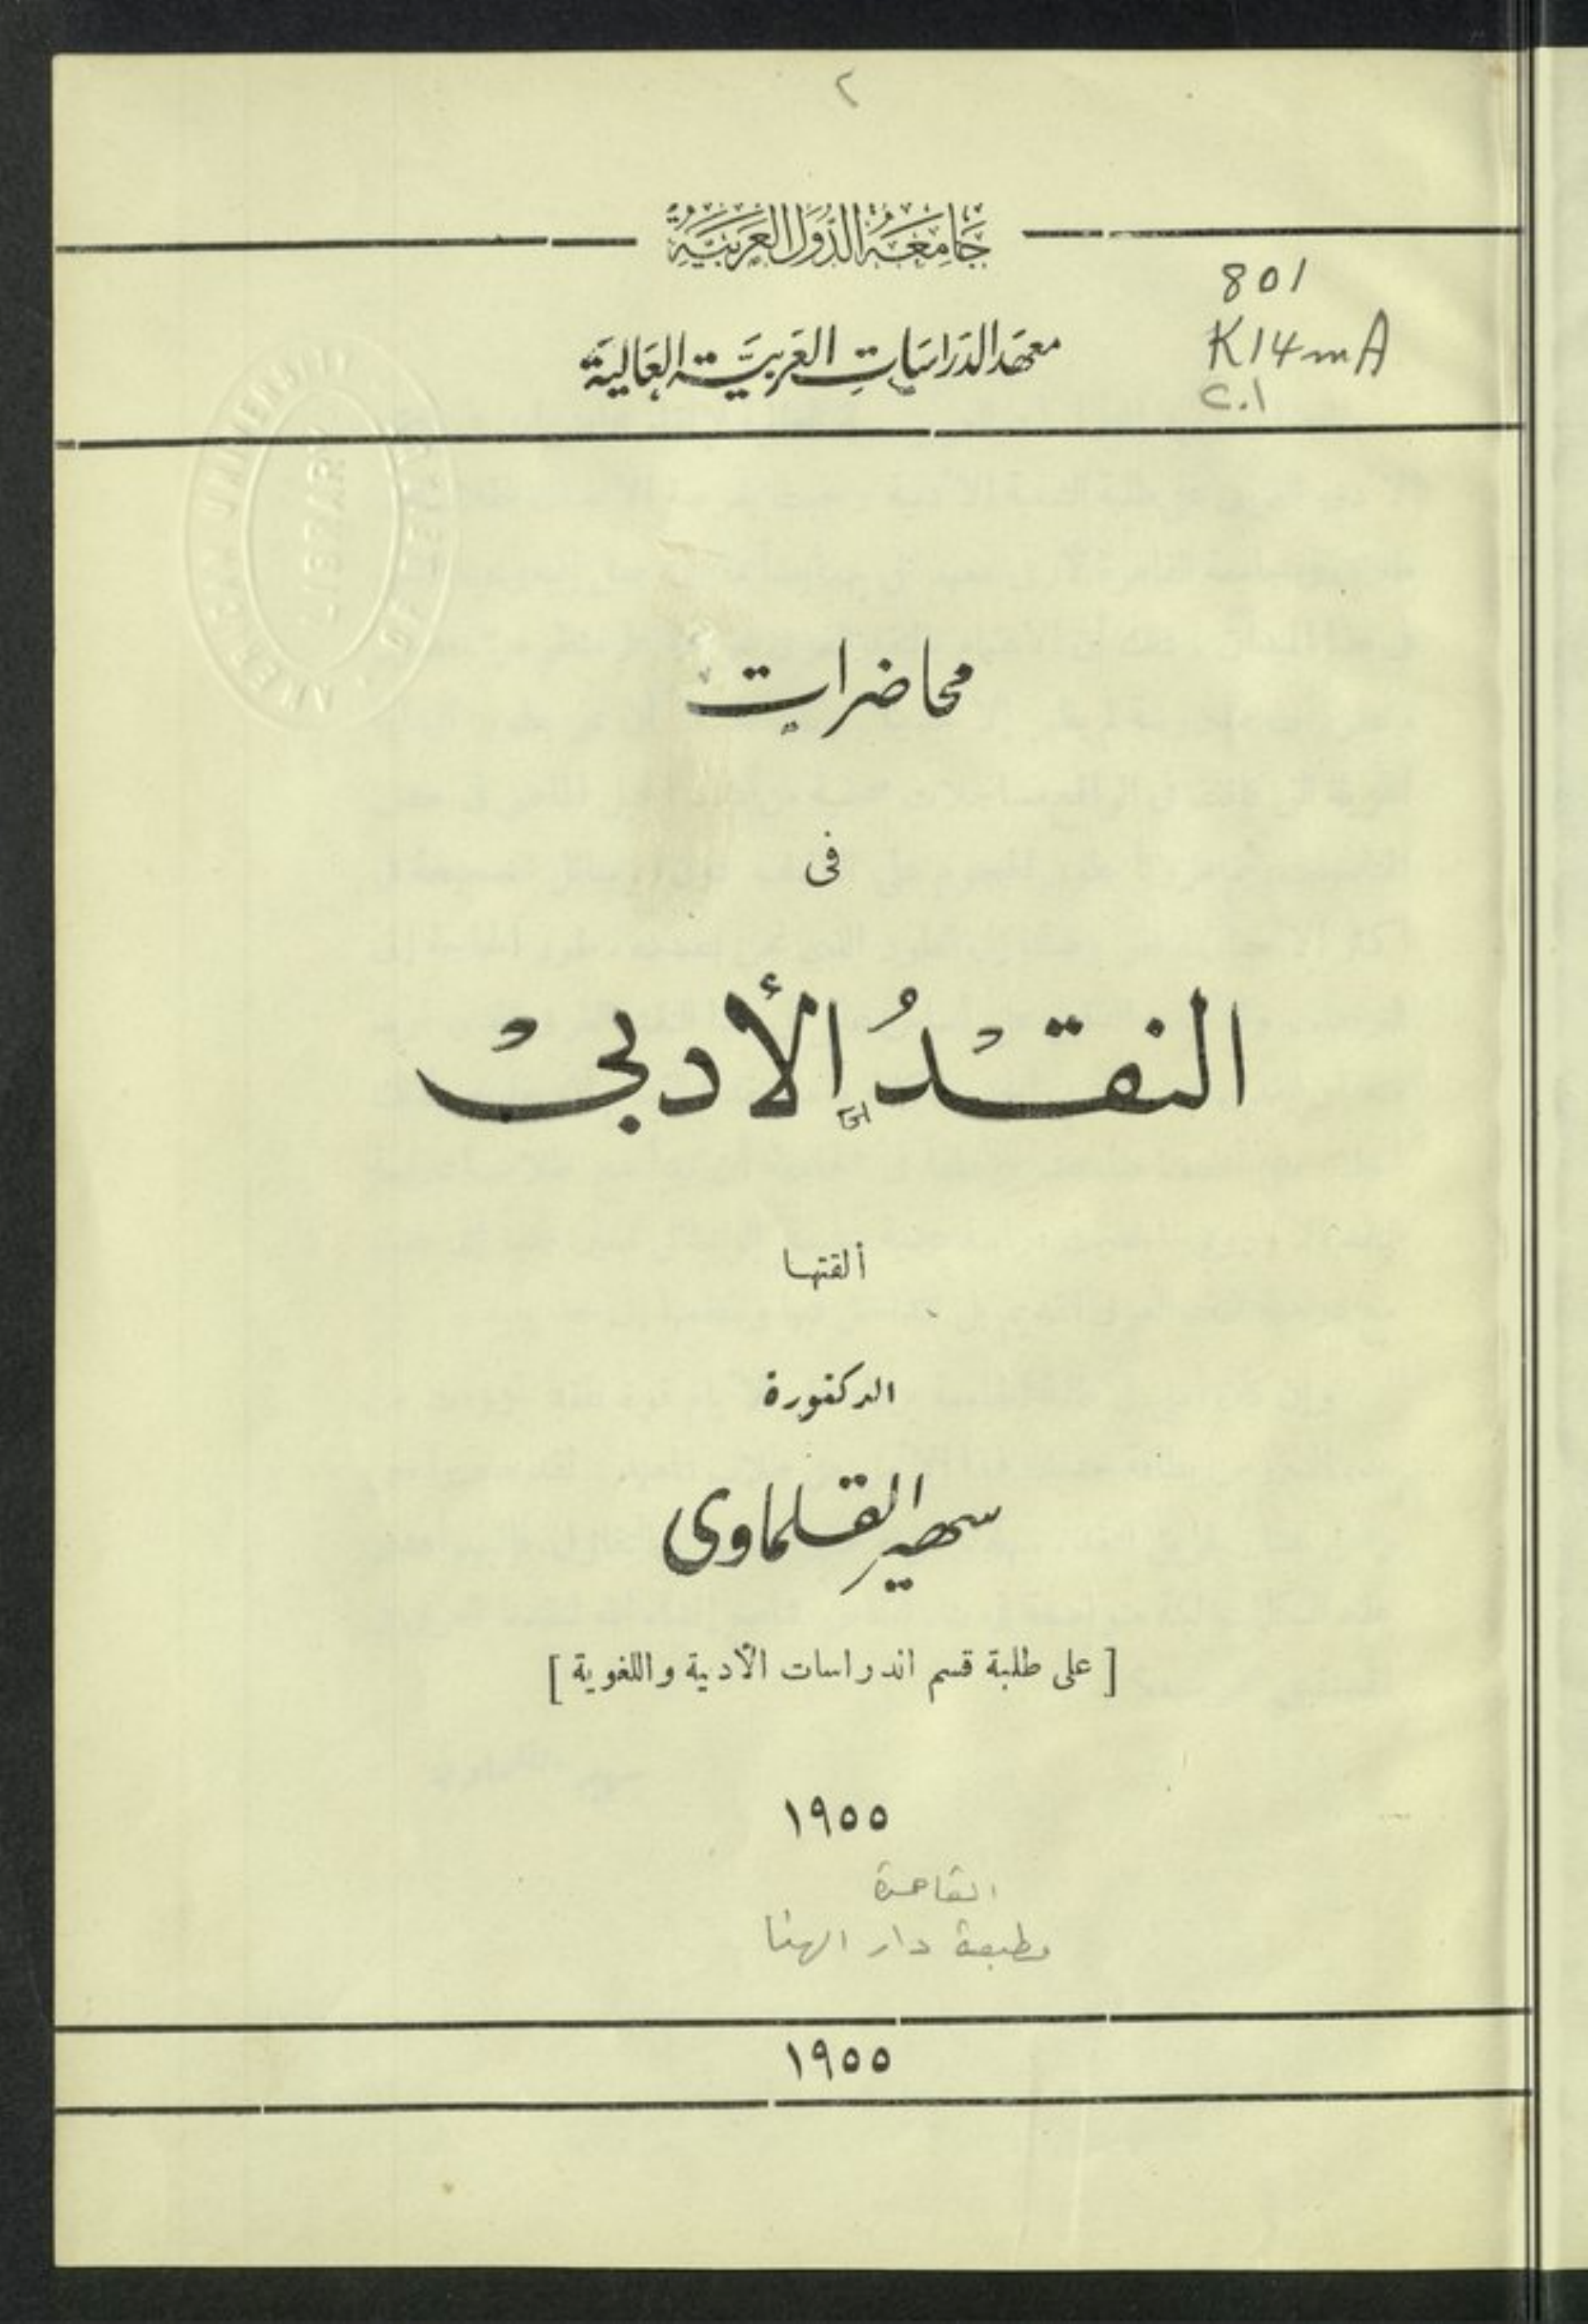 ٢
جَامِعَةُ الدُّوَلِ العَرَبيَّةِ
801
K14mA
c.1
معهَد الدَرَاسَاتِ العَربيَّة العَالية
AMERICAN UNIVERSITY
LIBRARY
محاضرات
فى
النقدُ الأدبىْ
ألقتها
الدكتورة
سهير القلماوى
[ على طلبة قسم الدراسات الأدبية واللغوية ]
١٩٥٥
القاهرة
مطبعة دار الهنا
١٩٥٥